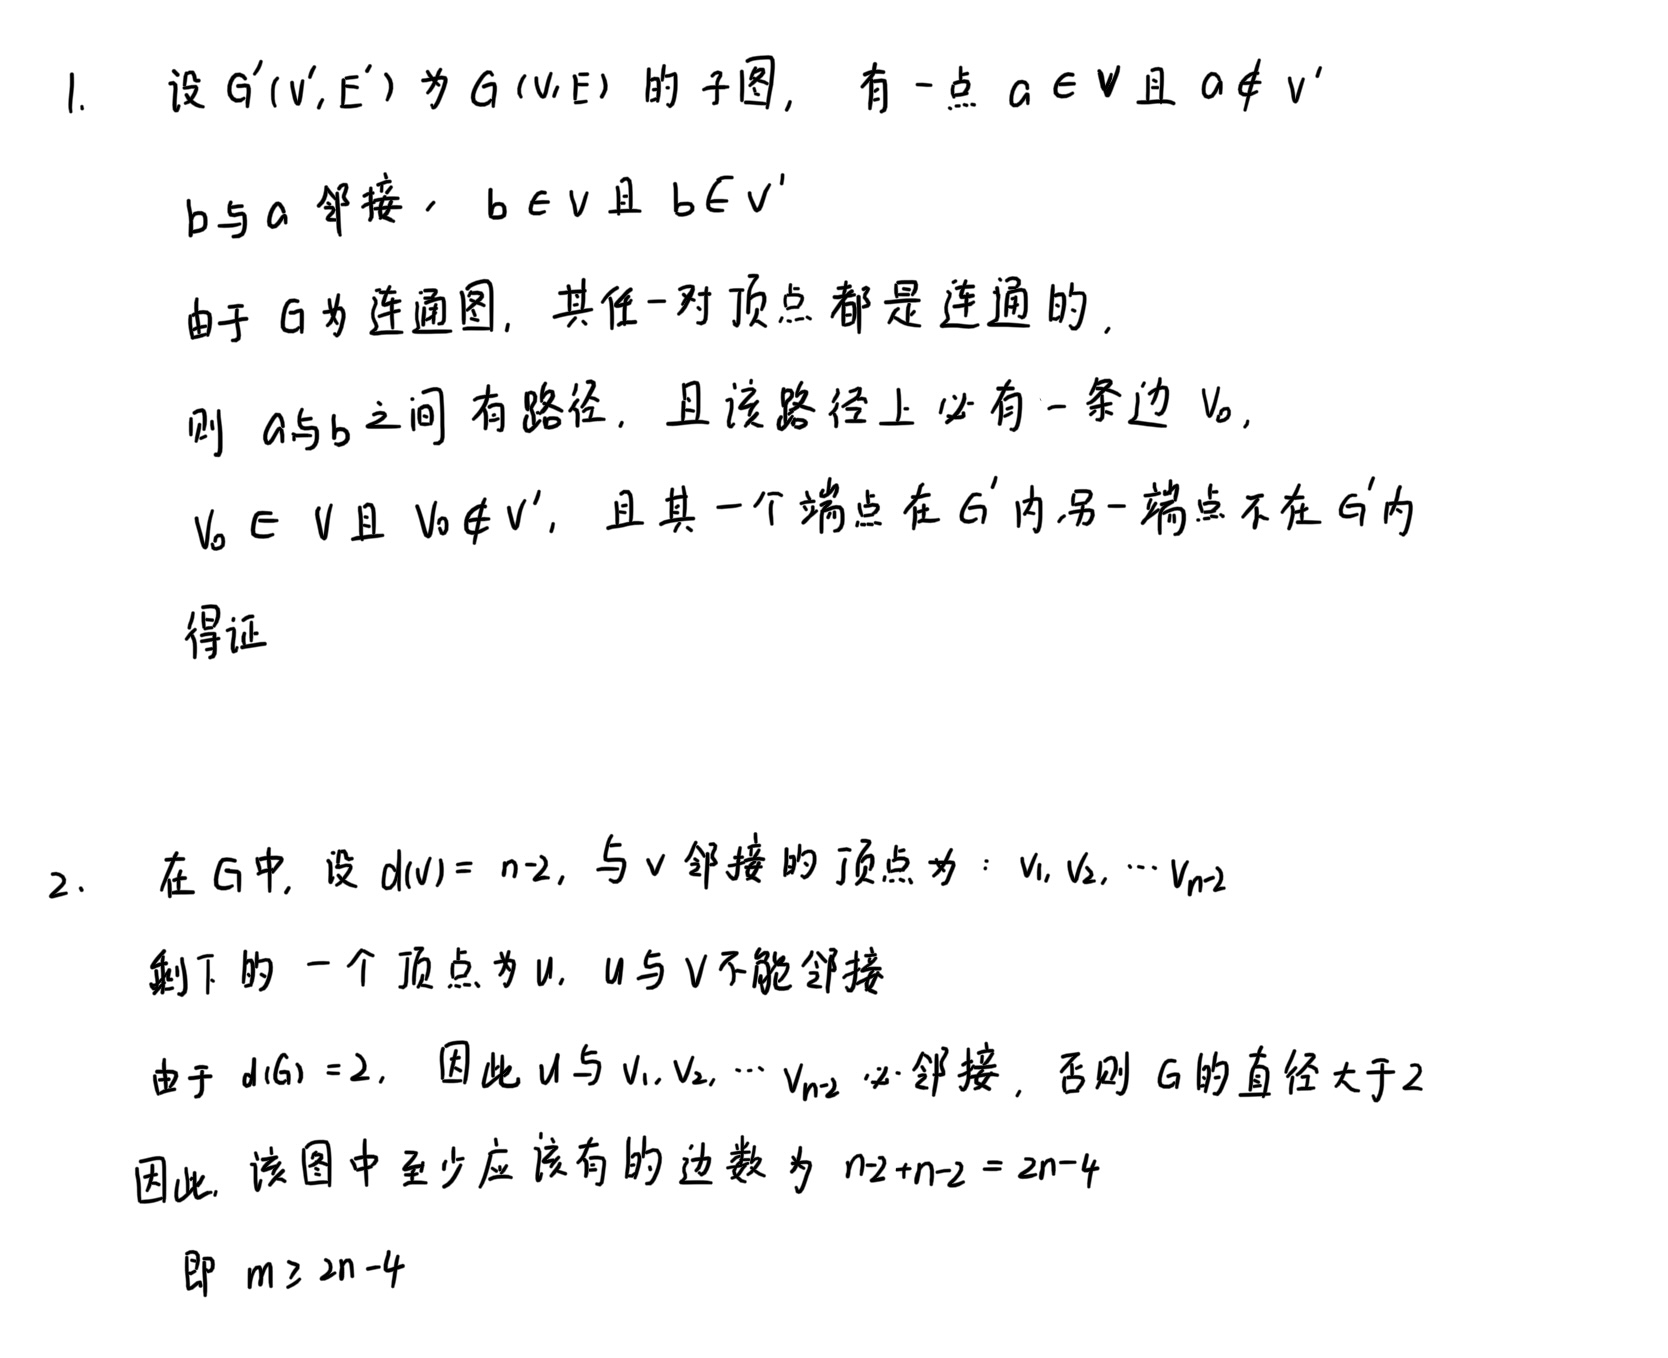 1. 设 G'(V',E') 为 G(V,E) 的子图, 有一点 a∈V且 a∉V'
b与a 邻接, b∈V且 b∈V'
由于 G为连通图, 其任一对顶点都是连通的,
则 a与b之间有路径, 且该路径上必有一条边 V₀,
V₀∈V且 V₀∉V', 且其一个端点在G'内,另一端点不在G'内
得证
2. 在G中, 设 d(v)= n-2, 与v邻接的顶点为: v₁, v₂, …vₙ₋₂
剩下的一个顶点为u, u与v不能邻接
由于 d(G)=2, 因此u与v₁, v₂, … vₙ₋₂ 必邻接, 否则 G的直径大于2
因此, 该图中至少应该有的边数为 n-2+n-2 = 2n-4
即 m≥2n-4